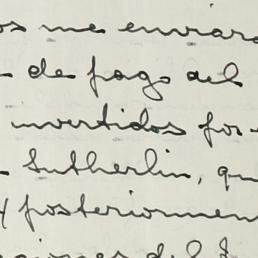 os me enviara
de pago del
invertidos por
Sutherlin, qu
y posteriormen